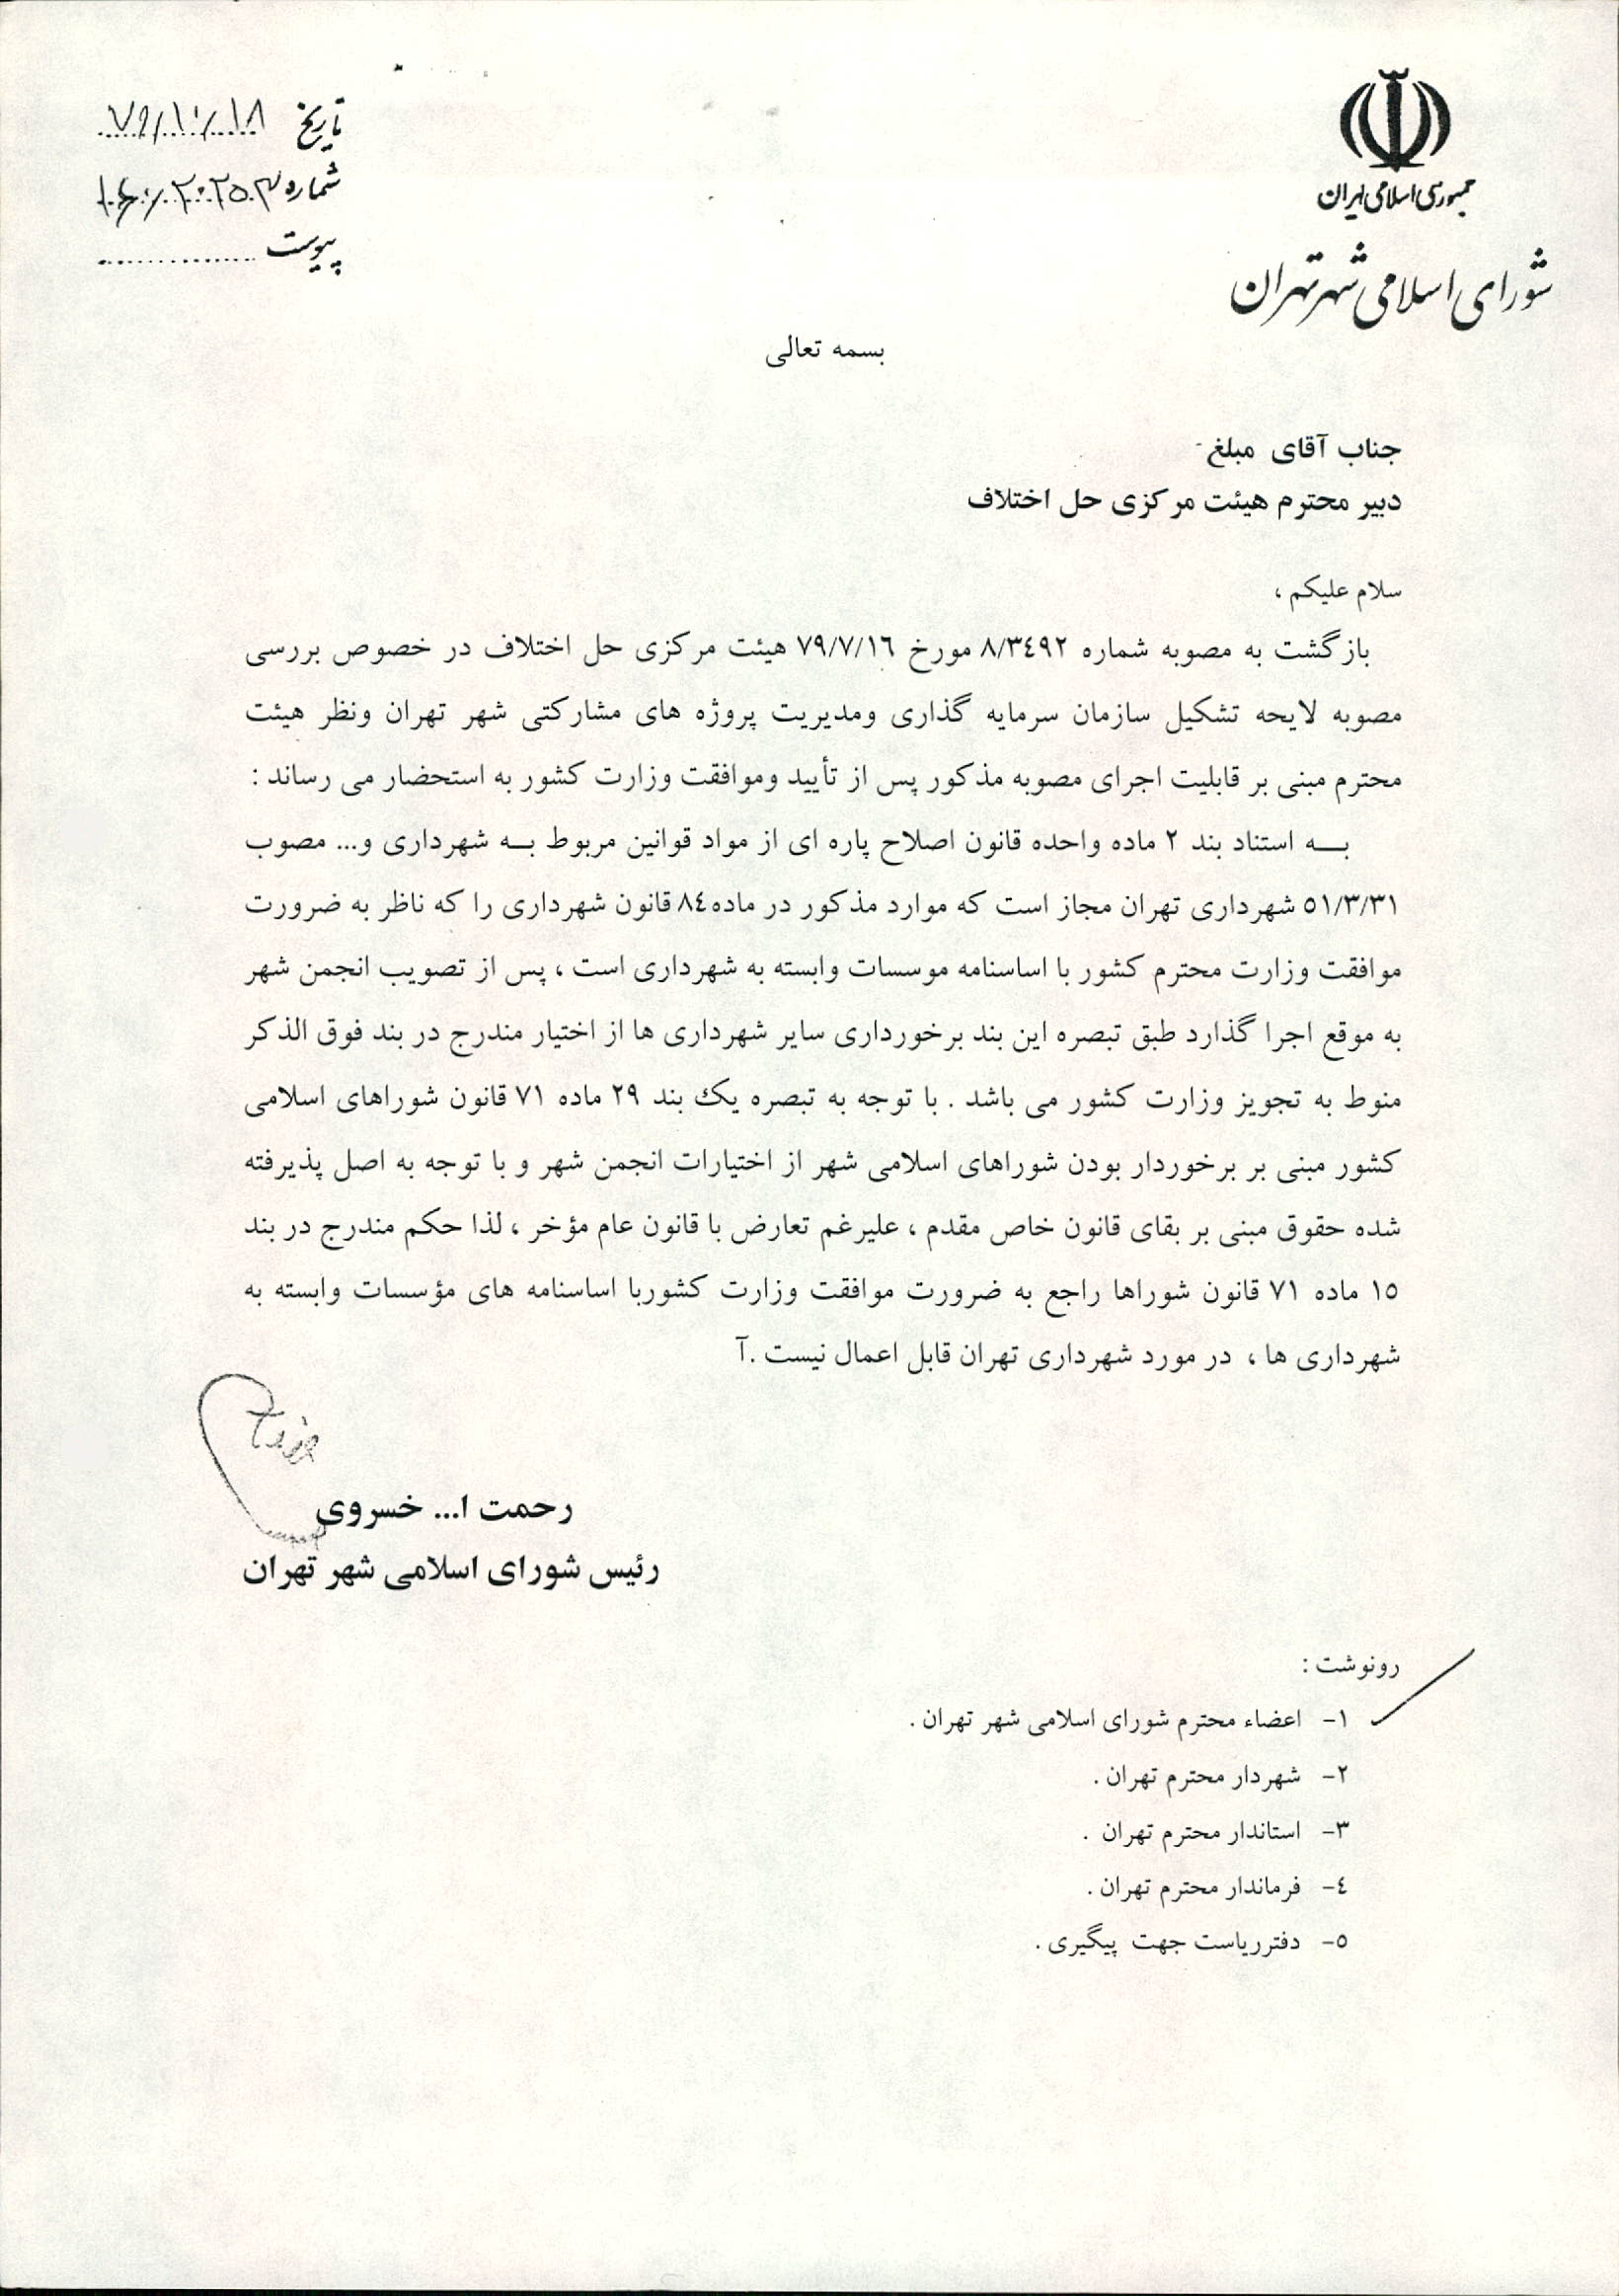 جمهوری اسلامی ایران
شورای اسلامی شهر تهران
تاریخ
شماره
پیوست
بسمه تعالی
جناب آقای مبلغ
دبیر محترم هیئت مرکزی حل اختلاف
سلام علیکم ،
بازگشت به مصوبه شماره ۸/۳٤۹۲ مورخ ۷۹/۷/۱٦ هیئت مرکزی حل اختلاف در خصوص بررسی
مصوبه لایحه تشکیل سازمان سرمایه گذاری ومدیریت پروژه های مشارکتی شهر تهران ونظر هیئت
محترم مبنی بر قابلیت اجرای مصوبه مذکور پس از تأیید وموافقت وزارت کشور به استحضار می رساند :
بـــه استناد بند ۲ ماده واحده قانون اصلاح پاره ای از مواد قوانین مربوط بـــه شهرداری و... مصوب
۵۱/۳/۳۱ شهرداری تهران مجاز است که موارد مذکور در ماده۸٤ قانون شهرداری را که ناظر به ضرورت
موافقت وزارت محترم کشور با اساسنامه موسسات وابسته به شهرداری است ، پس از تصویب انجمن شهر
به موقع اجرا گذارد طبق تبصره این بند برخورداری سایر شهرداری ها از اختیار مندرج در بند فوق الذکر
منوط به تجویز وزارت کشور می باشد . با توجه به تبصره یک بند ۲۹ ماده ۷۱ قانون شوراهای اسلامی
کشور مبنی بر برخوردار بودن شوراهای اسلامی شهر از اختیارات انجمن شهر و با توجه به اصل پذیرفته
شده حقوق مبنی بر بقای قانون خاص مقدم ، علیرغم تعارض با قانون عام مؤخر ، لذا حکم مندرج در بند
۱۵ ماده ۷۱ قانون شوراها راجع به ضرورت موافقت وزارت کشوربا اساسنامه های مؤسسات وابسته به
شهرداری ها ، در مورد شهرداری تهران قابل اعمال نیست .آ
رحمت ا... خسروی
رئیس شورای اسلامی شهر تهران
رونوشت :
۱- اعضاء محترم شورای اسلامی شهر تهران .
۲- شهردار محترم تهران .
۳- استاندار محترم تهران .
٤- فرماندار محترم تهران .
۵- دفترریاست جهت پیگیری .